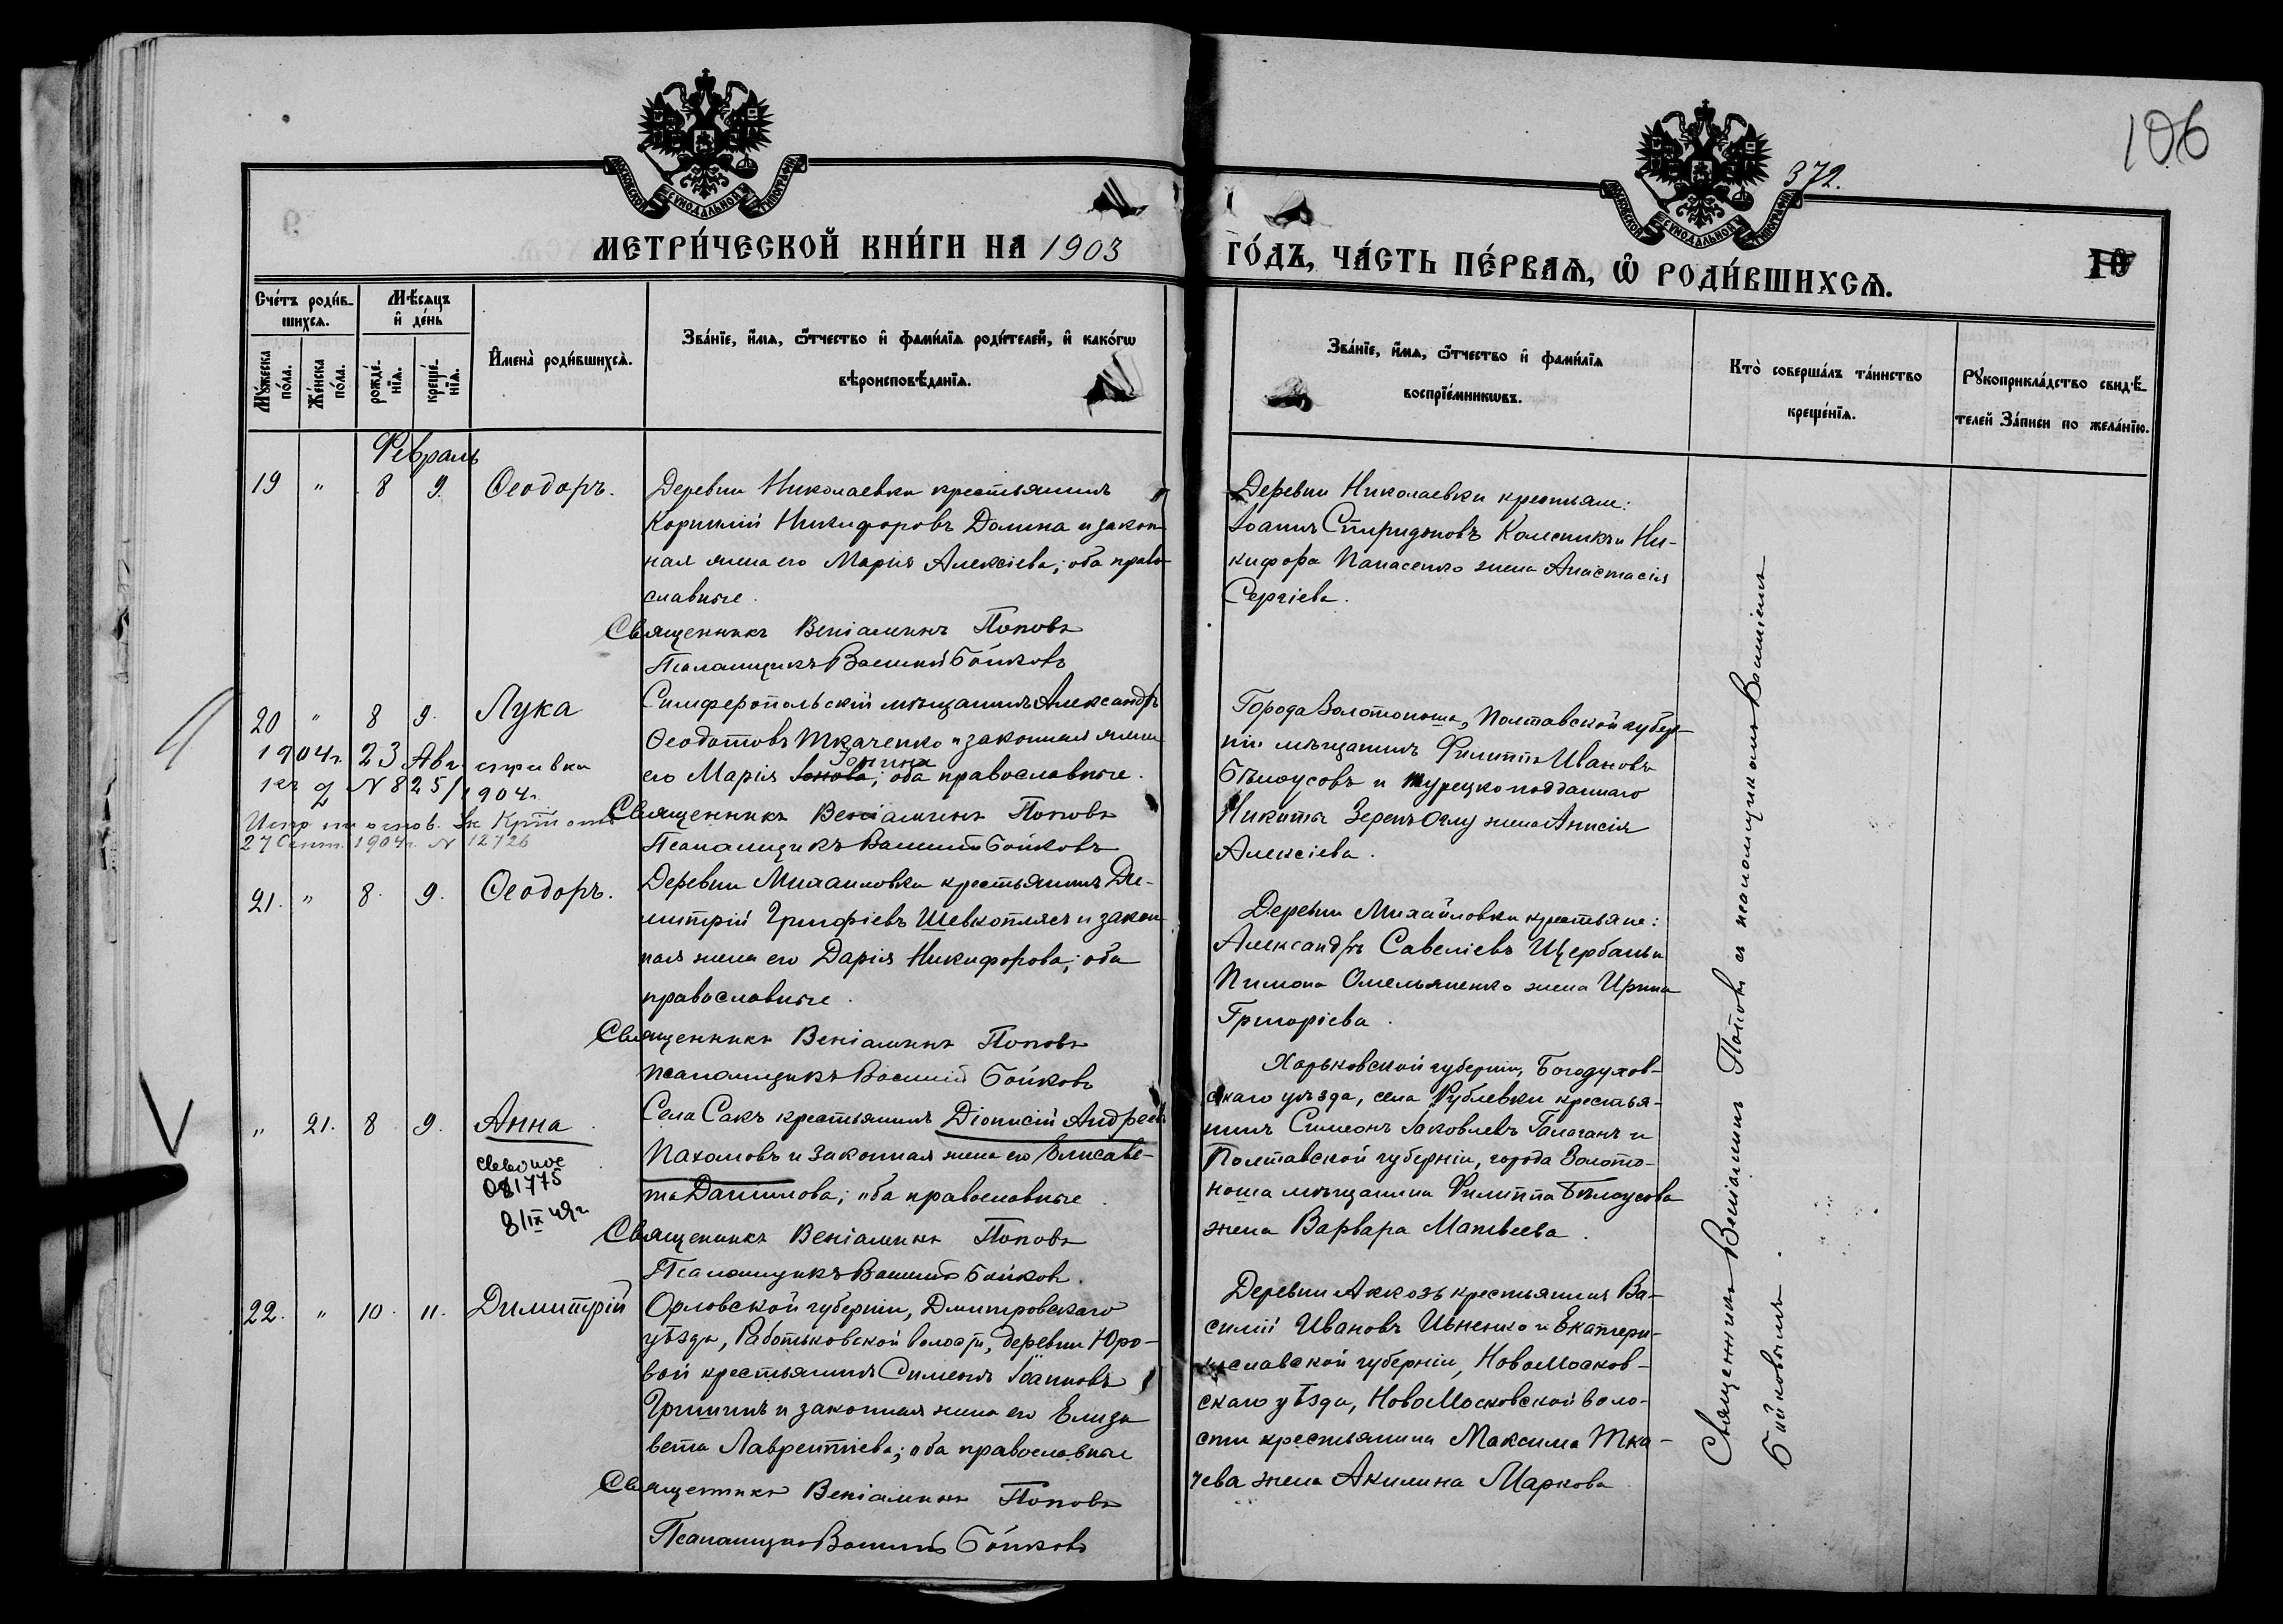 106
372.
МОСКОВСКОЙ СѴНОДАЛЬНОЙ ТИПОГРАФІИ
МОСКОВСКОЙ СѴНОДАЛЬНОЙ ТИПОГРАФІИ
МЕТРИ́ЧЕСКОЙ КНИ́ГИ НА 1903
ГО́ДЪ, ЧА́СТЬ ПЕ́РВАѦ, Ѡ РОДИ́ВШИХСѦ.
10
Сче́тъ роди́в-
шихсѧ.
Мѣ́сяцъ
и҆ де́нь
Мꙋ́жеска
по́ла.
Же́нска
по́ла.
рожде́-
нїѧ.
креще́-
нїѧ.
И҆мена̀ роди́вшихсѧ.
Зва́нїе, и҆́мѧ, ѻ҆́тчество и҆ фами́лїѧ роди́телей, и҆ како́гѡ
вѣроисповѣ́данїѧ.
Зва́нїе, и҆́мѧ, ѻ҆́тчество и҆ фами́лїѧ
воспрїе́мникѡвъ.
Кто̀ соверша́лъ та́инство
креще́нїѧ.
Рꙋкоприкла́дство свидѣ́-
телей За́писи по жела́нїю.
Февраль
19 " 8 9. Ѳеодоръ.
Деревни Николаевки крестьянинъ
Корнилій Никифоровъ Долина и закон-
ная жена его Марія Алексіева; оба право-
славные.
Священникъ Веніаминъ Поповъ
Псаломщикъ Василий Бойковъ
Деревни Николаевки крестьяне:
Іоаннъ Спиридоновъ Колесникъ и Ни-
кифора Панасенко жена Анастасія
Сергіева.
20 " 8 9. Лука
1904г. 23 Авг. справка
N 825/1904г.
27 Сент. 1904г. N 12726
Симферопольскій мѣщанинъ Александръ
Ѳеодотовъ Ткаченко и законная жена
Іонина
его Марія Іонова; оба православные.
Священникъ Веніаминъ Поповъ
Псаломщикъ Василий Бойковъ
Города Золотоноша, Полтавской губер-
ніи мѣщанинъ Филиппъ Ивановъ
Бѣлоусовъ и турецко подданнаго
Никиты Зеренъ Оглу жена Анисія
Алексіева.
21. " 8. 9. Ѳеодоръ.
Деревни Михаиловки крестьянинъ Ди-
митрій Григоріевъ Шевкоплясъ и закон-
ная жена его Дарія Никифорова; оба
православные.
Священникъ Веніаминъ Поповъ
Псаломщикъ Василій Бойковъ
Деревни Михайловки крестьяне:
Александръ Савеліевъ Щербань и
Пимона Омельяненко жена Ирина
Григоріева.
" 21. 8. 9. Анна
081775
8/IX 49г.
Села Сакъ крестьянинъ Діонисій Андреевъ
Пахомовъ и законная жена его Елисаве-
та Даніилова; оба православные.
Священникъ Веніаминъ Поповъ
Псаломщикъ Василий Бойковъ.
Харьковской губерніи, Богодухов-
скаго уѣзда, села Рублевки крестья-
нинъ Симеонъ Іаковлевъ Галаганъ и
Полтавской губерніи, города Золото-
ноша мѣщанина Филиппа Бѣлоусова
жена Варвара Матвеева.
22. " 10. 11. Димитрій
Орловской губерніи, Дмитровскаго
уѣзда, Работьковской волости, деревни Юро-
вой крестьянинъ Симеонъ Іоанновъ
Гришинъ и законная жена его Елиза-
вета Лаврентіева; оба православные
Священникъ Веніаминъ Поповъ
Псаломщикъ Василий Бойковъ
Деревни Аккозъ крестьянинъ Ва-
силій Ивановъ Ивненко и Екатери-
нославской губерніи, НовоМосков-
скаго уѣзда, НовоМосковской воло-
сти крестьянина Максима Тка-
чева жена Акилина Маркова
Священникъ Веніаминъ Поповъ съ псаломщикомъ Василіемъ
Бойковымъ.